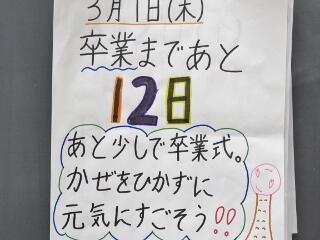 3月1日(木)
卒業まであと
12日
あと少しで卒業式。
かぜをひかずに
元気にすごそう!!